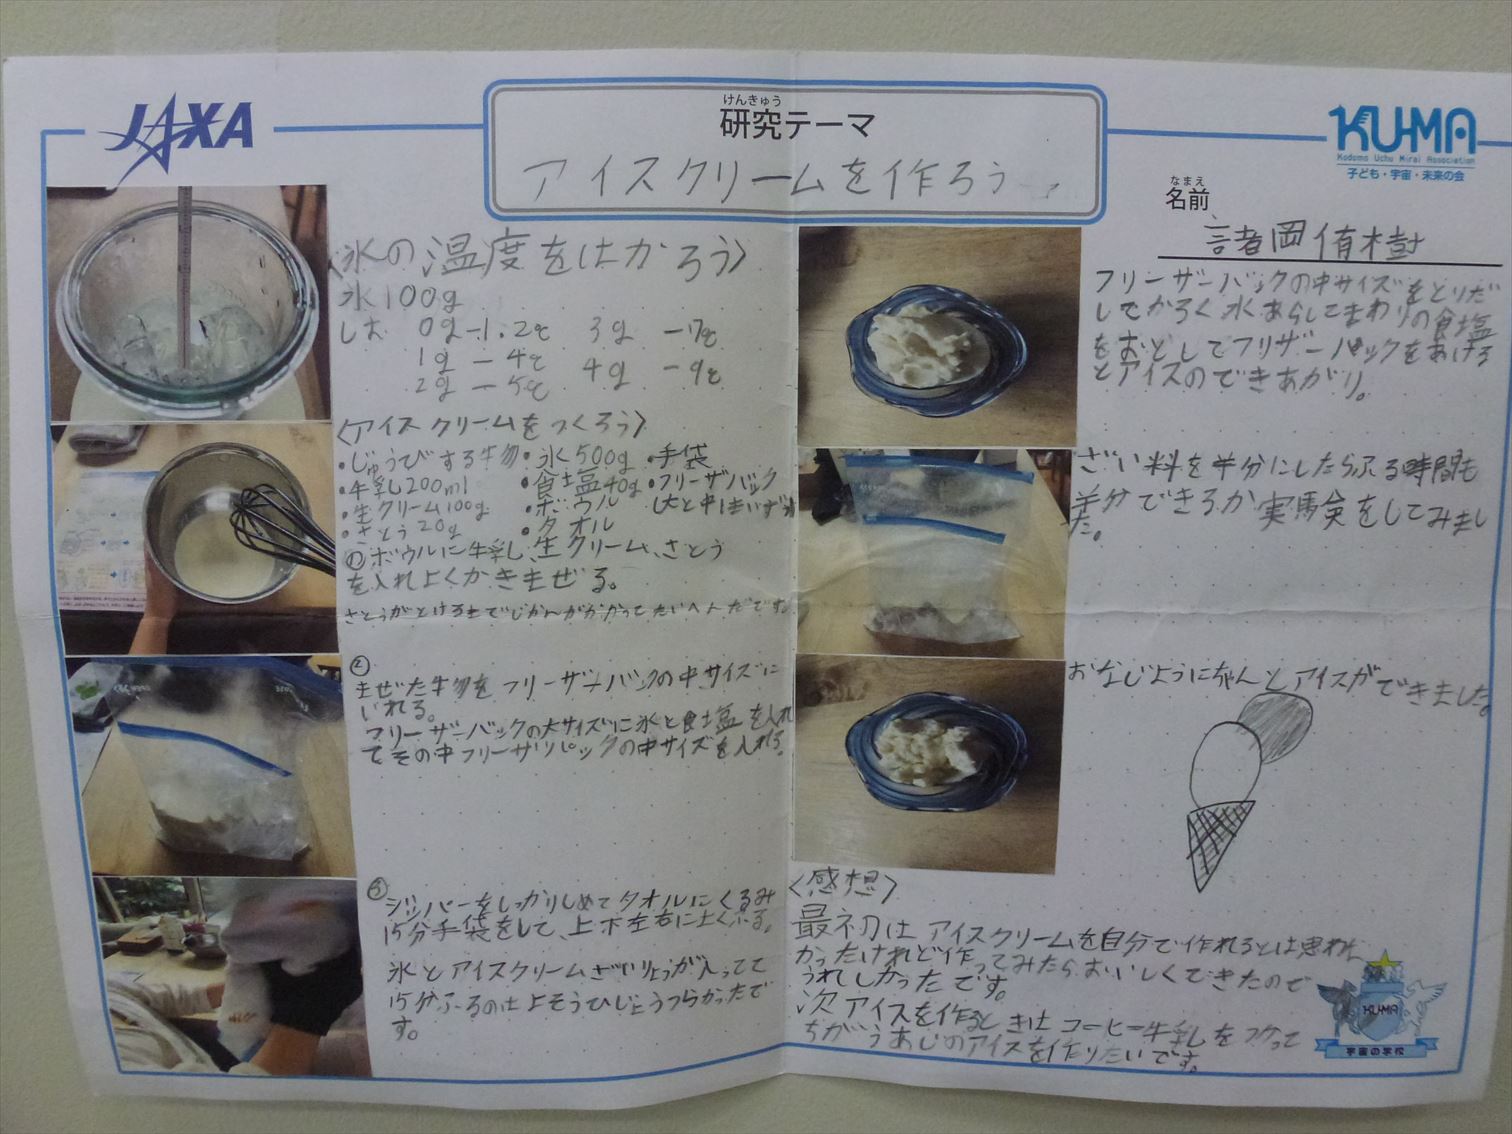 JAXA
けんきゅう
研究テーマ
アイスクリームを作ろう
KU-MA
Kodomo Uchu Mirai Association
子ども・宇宙・未来の会
なまえ
名前
諸岡侑樹
〈氷の温度をはかろう〉
氷100g
しお 0g -1.2℃ 3g -7℃
1g -4℃ 4g -9℃
2g -5℃
〈アイスクリームをつくろう〉
・じゅうびする物・氷500g・手袋
・牛乳200ml ・食塩40g・フリーザバック
・生クリーム100g ・ボウル 大と中1まいずつ
・さとう20g ・タオル
①ボウルに牛乳、生クリーム、さとう
を入れよくかきまぜる。
さとうがとけるまでじかんがかかってたいへんだです。
②
まぜた物をフリーザーバックの中サイズに
いれる。
フリーザーバックの大サイズに氷と食塩を入れ
てその中フリーザツパックの中サイズを入れる。
③
ジッパーをしっかりしめてタオルにくるみ
15分手袋をして、上下左右によくふる。
氷とアイスクリームざいりょうが入ってて
15分ふるのはよそうひじょうつらかったで
す。
フリーザーバックの中サイズをとりだ
してかるく水あらしてまわりの食塩
をおとしてフリザーパックをあける
とアイスのできあがり。
ざい料を半分にしたらふる時間も
半分でできるか実験をしてみまし
た。
おなじようにちゃんとアイスができました。
〈感想〉
最初はアイスクリームを自分で作れるとは思わな
かったけれど作ってみたらおいしくできたので
うれしかったです。
次アイスを作るときはコーヒー牛乳をつかって
ちがうあじのアイスを作りたいです。
KU-MA
宇宙の学校